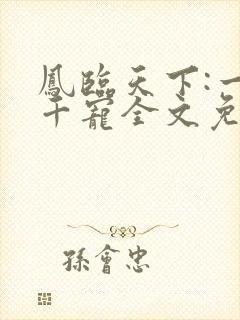 鳳臨天下:一
千寵全文免
孫會忠